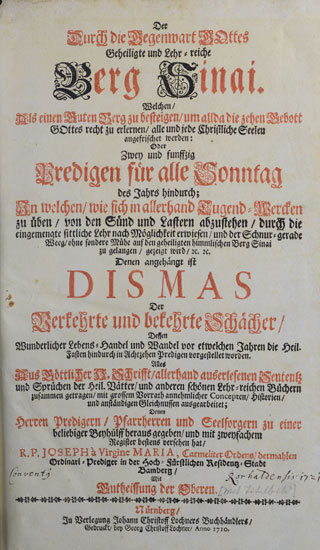 Der
Durch die Gegenwart GOttes
Geheiligte und Lehr-reiche
Berg Sinai.
Welchen/
Als einen Guten Berg zu besteigen/ um allda die zehen Gebott
GOttes recht zu erlernen/ alle und jede Christliche Seelen
angefrischet werden:
Oder
Zwey und funffzig
Predigen für alle Sonntag
des Jahrs hindurch;
In welchen/ wie sich in allerhand Tugend-Wercken
zu üben/ von den Sünd und Lastern abzustehen/ durch die
eingemengte sittliche Lehr nach Möglichkeit erwiesen/ und der Schnur-gerade
Weeg/ ohne sondere Mühe auf den geheiligten himmlischen Berg Sinai
zu gelangen/ gezeigt wird/ ꝛc. ꝛc.
Denen angehängt ist
DISMAS
Der
Verkehrte und bekehrte Schächer/
Dessen
Wunderlicher Lebens-Handel und Wandel vor etwelchen Jahren die Heil.
Fasten hindurch in Achtzehen Predigen vorgestellet worden.
Alles
Aus Göttlicher H. Schrifft/ allerhand auserlesenen Sententz
und Sprüchen der Heil. Vätter/ und anderen schönen Lehr-reichen Büchern
zusammen getragen/ mit grossem Vorrath annehmlicher Concepten/ Historien/
und anständigen Gleichnussen ausgearbeitet;
Denen
Herren Predigern/ Pfarrherren und Seelsorgern zu einer
beliebiger Beyhülff heraus gegeben/ und mit zweyfachem
Register bestens versehen hat/
R. P. JOSEPH à Virgine MARIA, Carmeliter Ordens/ dermahlen
Ordinari-Prediger in der Hoch-Fürstlichen Residentz-Stadt
Bamberg/
Conventus
Mit
Gutheissung der Oberen.
Nürnberg/
In Verlegung Johann Christoff Lochners Buchhändlers/
Gedruckt/ bey Georg Christoff Lochner/ Anno 1720.